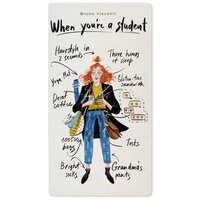 Bruno Visconti
When you're a student
Hairstyle in
2 seconds
Three hours
of sleep
Yoga Mat
Gluten-free
sandwich
Decaf
coffee
bags
Tests
Bright
socks
Grandma's
pants